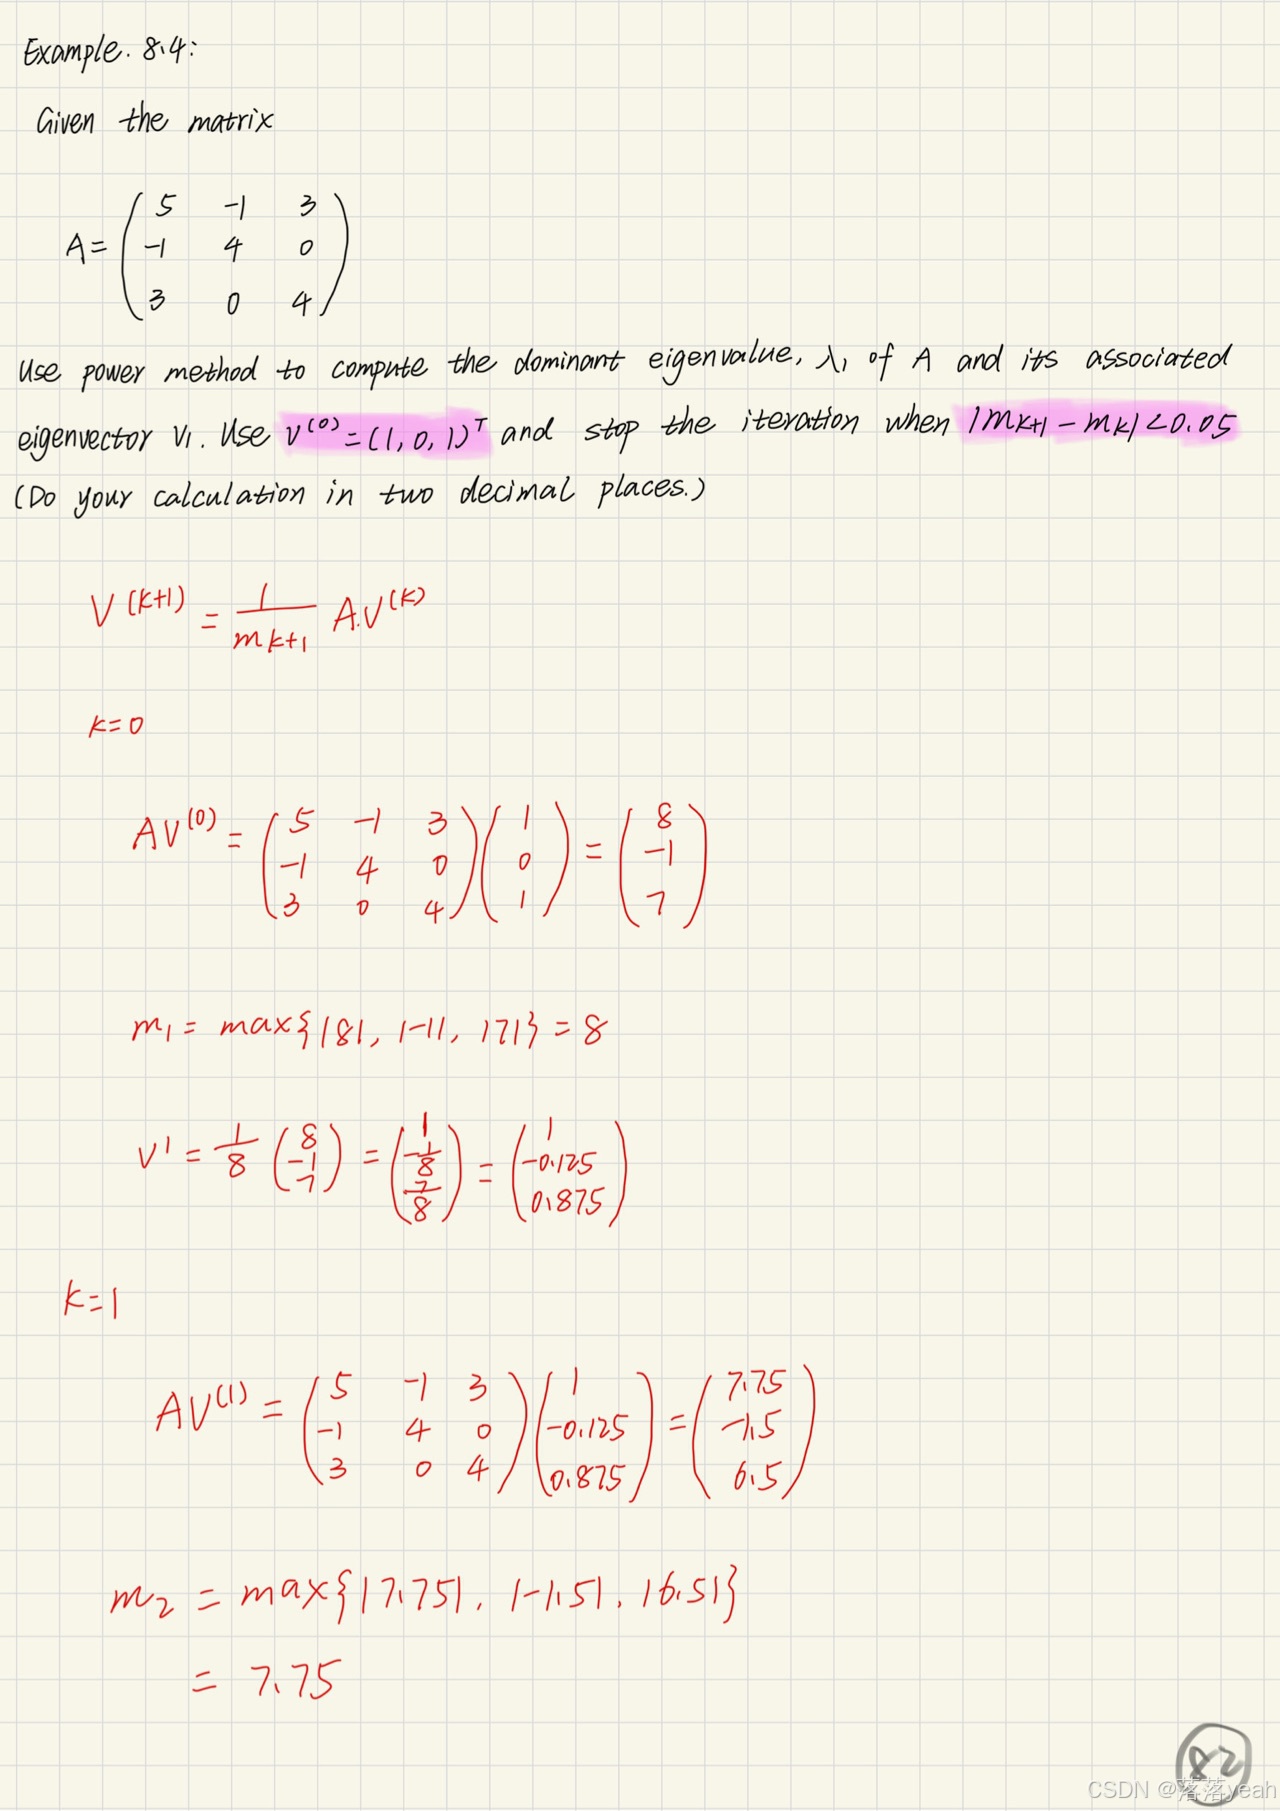 Example. 8.4:
Given the matrix
A = ( 5 -1 3
-1 4 0
3 0 4 )
Use power method to compute the dominant eigenvalue, λ1 of A and its associated
eigenvector V1. Use V^(0) = (1, 0, 1)^T and stop the iteration when |mk+1 - mk| < 0.05
(Do your calculation in two decimal places.)
V^(k+1) = 1/mk+1 A.V^(k)
k=0
AV^(0) = ( 5 -1 3 ) ( 1 ) = ( 8 )
( -1 4 0 ) ( 0 ) ( -1 )
( 3 0 4 ) ( 1 ) ( 7 )
m1 = max{|8|, |-1|, |7|} = 8
V^1 = 1/8 ( 8 ) = ( 1 ) = ( 1 )
( -1 ) ( -1/8 ) ( -0.125 )
( 7 ) ( 7/8 ) ( 0.875 )
k=1
AV^(1) = ( 5 -1 3 ) ( 1 ) = ( 7.75 )
( -1 4 0 ) ( -0.125 ) ( -1.5 )
( 3 0 4 ) ( 0.875 ) ( 6.5 )
m2 = max{|7.75|, |-1.5|, |6.5|}
= 7.75
82
CSDN @落落yeah